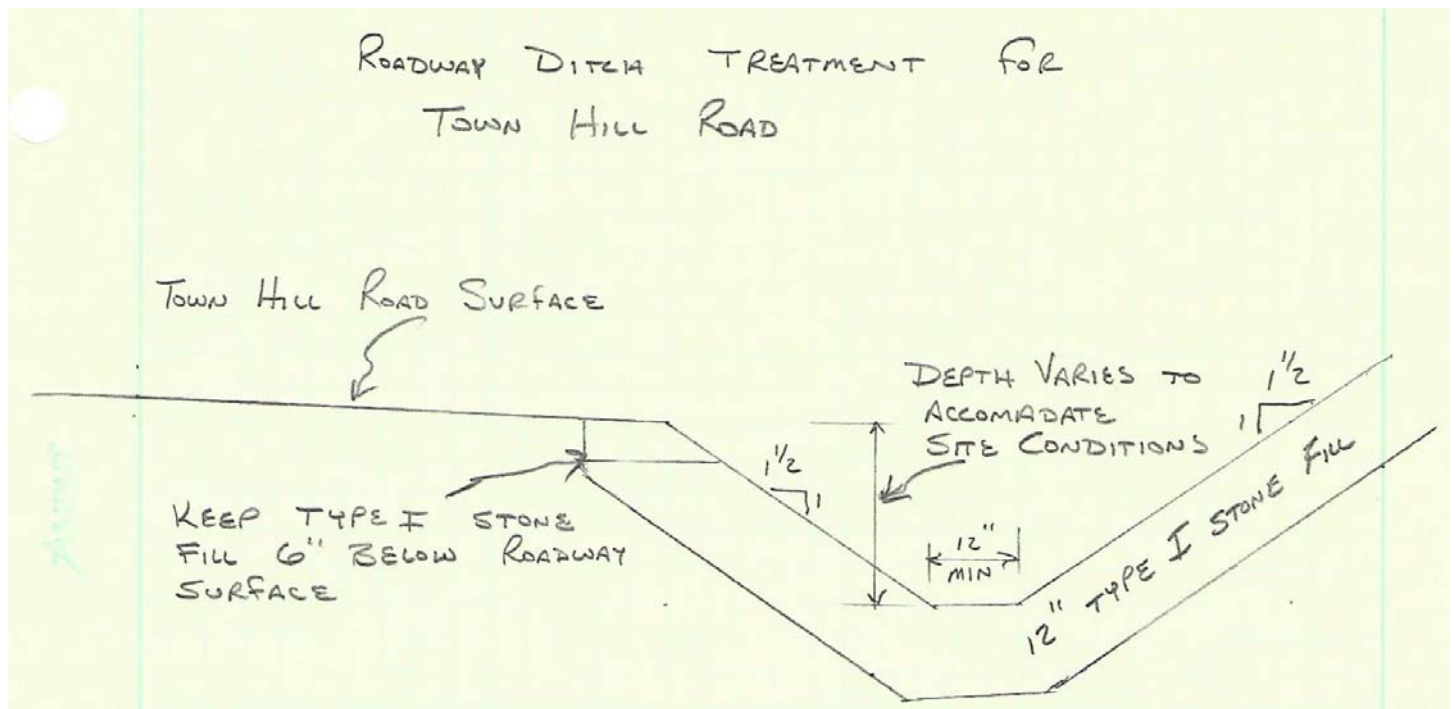 ROADWAY DITCH TREATMENT FOR
TOWN HILL ROAD
TOWN HILL ROAD SURFACE
DEPTH VARIES TO
ACCOMADATE
SITE CONDITIONS
1 1/2
1
1 1/2
1
KEEP TYPE I STONE
FILL 6" BELOW ROADWAY
SURFACE
12"
MIN
12" TYPE I STONE FILL